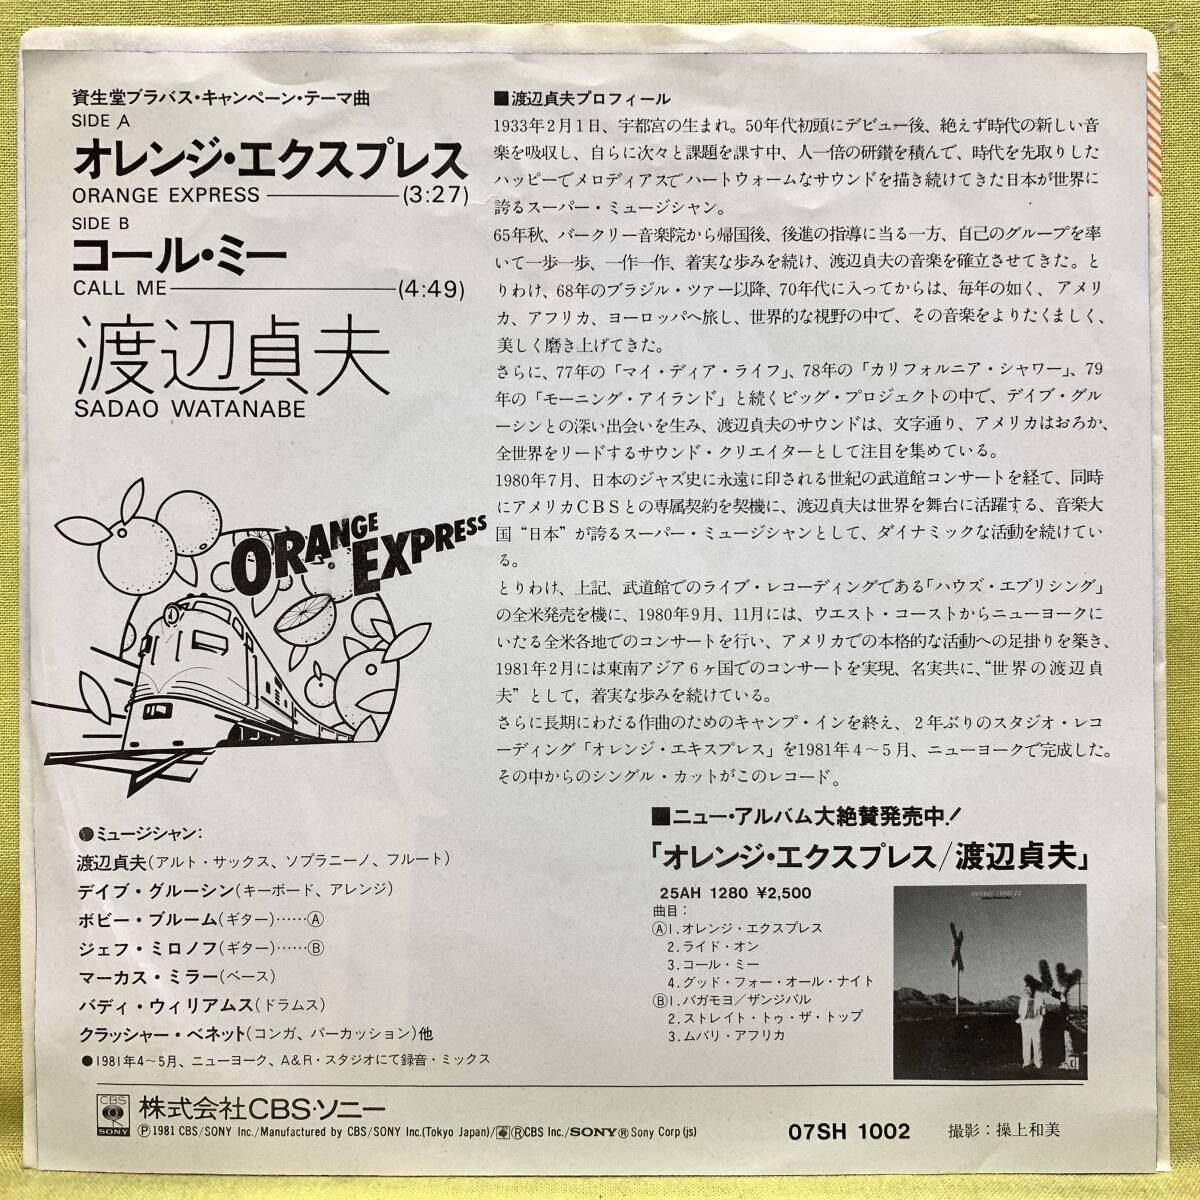 資生堂ブラバス・キャンペーン・テーマ曲
SIDE A
オレンジ・エクスプレス
ORANGE EXPRESS (3:27)
SIDE B
コール・ミー
CALL ME (4:49)
渡辺貞夫
SADAO WATANABE
ORANGE EXPRESS
●ミュージシャン:
渡辺貞夫(アルト・サックス、ソプラニーノ、フルート)
デイブ・グルーシン(キーボード、アレンジ)
ボビー・ブルーム(ギター)……Ⓐ
ジェフ・ミロノフ(ギター)……Ⓑ
マーカス・ミラー(ベース)
バディ・ウィリアムス(ドラムス)
クラッシャー・ベネット(コンガ、パーカッション)他
●1981年4〜5月、ニューヨーク、A&R・スタジオにて録音・ミックス
■渡辺貞夫プロフィール
1933年2月1日、宇都宮の生まれ。50年代初頭にデビュー後、絶えず時代の新しい音
楽を吸収し、自らに次々と課題を課す中、人一倍の研鑽を積んで、時代を先取りした
ハッピーでメロディアスでハートウォームなサウンドを描き続けてきた日本が世界に
誇るスーパー・ミュージシャン。
65年秋、バークリー音楽院から帰国後、後進の指導に当る一方、自己のグループを率
いて一歩一歩、一作一作、着実な歩みを続け、渡辺貞夫の音楽を確立させてきた。と
りわけ、68年のブラジル・ツァー以降、70年代に入ってからは、毎年の如く、アメリ
カ、アフリカ、ヨーロッパへ旅し、世界的な視野の中で、その音楽をよりたくましく、
美しく磨き上げてきた。
さらに、77年の「マイ・ディア・ライフ」、78年の「カリフォルニア・シャワー」、79
年の「モーニング・アイランド」と続くビッグ・プロジェクトの中で、デイブ・グル
ーシンとの深い出会いを生み、渡辺貞夫のサウンドは、文字通り、アメリカはおろか、
全世界をリードするサウンド・クリエイターとして注目を集めている。
1980年7月、日本のジャズ史に永遠に印される世紀の武道館コンサートを経て、同時
にアメリカCBSとの専属契約を契機に、渡辺貞夫は世界を舞台に活躍する、音楽大
国“日本”が誇るスーパー・ミュージシャンとして、ダイナミックな活動を続けてい
る。
とりわけ、上記、武道館でのライブ・レコーディングである「ハウズ・エブリシング」
の全米発売を機に、1980年9月、11月には、ウエスト・コーストからニューヨークに
いたる全米各地でのコンサートを行い、アメリカでの本格的な活動への足掛りを築き、
1981年2月には東南アジア6ヶ国でのコンサートを実現、名実共に、“世界の渡辺貞
夫”として，着実な歩みを続けている。
さらに長期にわたる作曲のためのキャンプ・インを終え、2年ぶりのスタジオ・レコ
ーディング「オレンジ・エキスプレス」を1981年4〜5月、ニューヨークで完成した。
その中からのシングル・カットがこのレコード。
■ニュー・アルバム大絶賛発売中！
「オレンジ・エクスプレス/渡辺貞夫」
25AH 1280 ¥2,500
曲目：
Ⓐ1.オレンジ・エクスプレス
2.ライド・オン
3.コール・ミー
4.グッド・フォー・オール・ナイト
Ⓑ1.バガモヨ/ザンジバル
2.ストレイト・トゥ・ザ・トップ
3.ムバリ・アフリカ
ORANGE EXPRESS
CBS SONY 株式会社CBS・ソニー
Ⓟ1981 CBS/SONY Inc./Manufactured by CBS/SONY Inc.(Tokyo Japan)/ⓇCBS Inc./SONYⓇSony Corp (js)
07SH 1002
撮影：操上和美